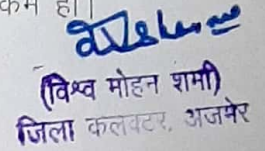 कम हो।
(विश्व मोहन शर्मा)
जिला कलक्टर, अजमेर